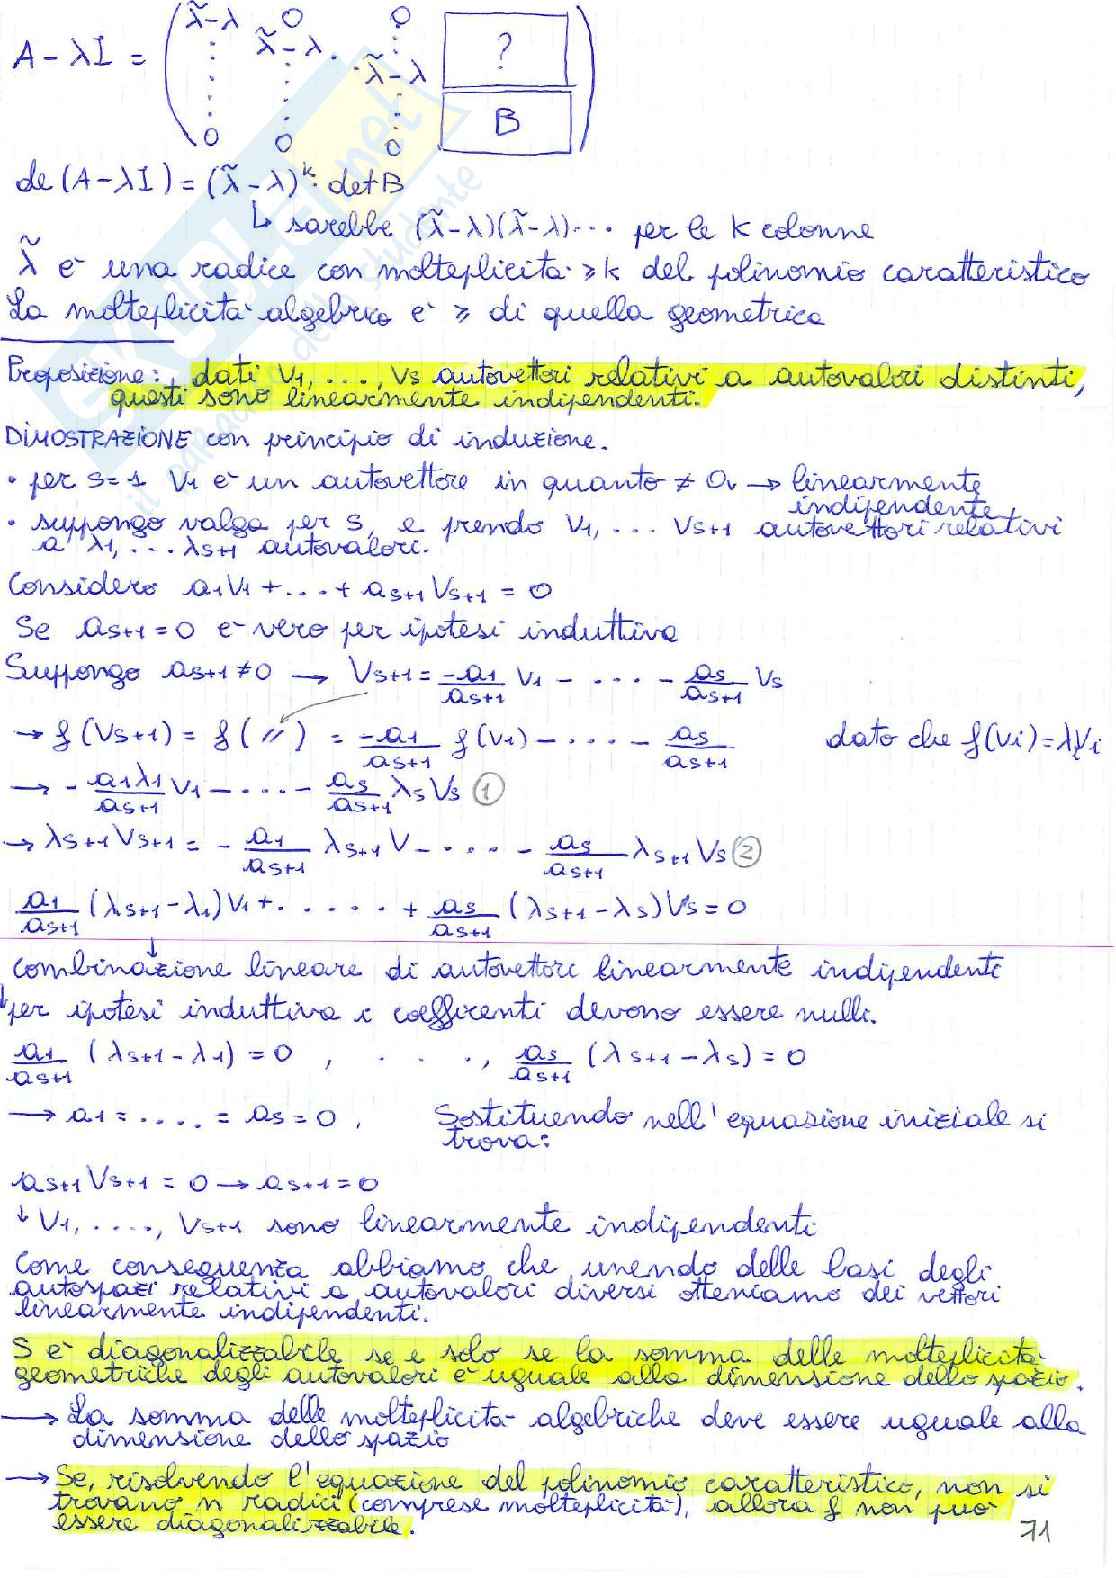 A - λI = ( λ̃-λ 0 0 ? 
λ̃-λ . . λ̃-λ
0 0 0 B )
de (A-λI) = (λ̃-λ)^k · det B
↳ sarebbe (λ̃-λ)(λ̃-λ)... per le k colonne
λ̃ è una radice con molteplicità ≥ k del polinomio caratteristico
La molteplicità algebrica è ≥ di quella geometrica
Proposizione: dati V1, ..., Vs autovettori relativi a autovalori distinti,
questi sono linearmente indipendenti.
DIMOSTRAZIONE con principio di induzione.
• per s=1 V1 è un autovettore in quanto ≠ 0v → linearmente
indipendente
• suppongo valga per s, e prendo V1, ... Vs+1 autovettori relativi
a λ1, ... λs+1 autovalori.
Considero a1V1 + ... + as+1Vs+1 = 0
Se as+1 = 0 è vero per ipotesi induttiva
Suppongo as+1 ≠ 0 → Vs+1 = -a1/as+1 V1 - .... - as/as+1 Vs
→ f(Vs+1) = f( // ) = -a1/as+1 f(V1) - .... - as/as+1 dato che f(Vi) = λiVi
→ - a1λ1/as+1 V1 - .... - as/as+1 λsVs ①
→ λs+1Vs+1 = - a1/as+1 λs+1V - .... - as/as+1 λs+1Vs ②
a1/as+1 (λs+1-λ1)V1 + ...... + as/as+1 (λs+1-λs)Vs = 0
↓
combinazione lineare di autovettori linearmente indipendenti
↓ per ipotesi induttiva i coefficenti devono essere nulli.
a1/as+1 (λs+1-λ1) = 0 , . . . , as/as+1 (λs+1-λs) = 0
→ a1 = .... = as = 0 , Sostituendo nell'equazione iniziale si
trova:
as+1Vs+1 = 0 → as+1 = 0
↓ V1, ...., Vs+1 sono linearmente indipendenti
Come conseguenza abbiamo che unendo delle basi degli
autospazi relativi a autovalori diversi otteniamo dei vettori
linearmente indipendenti.
S è diagonalizzabile se e solo se la somma delle molteplicità
geometriche degli autovalori è uguale alla dimensione dello spazio.
→ La somma delle molteplicità algebriche deve essere uguale alla
dimensione dello spazio
→ Se, risolvendo l'equazione del polinomio caratteristico, non si
trovano n radici (comprese molteplicità), allora f non può
essere diagonalizzabile.
71